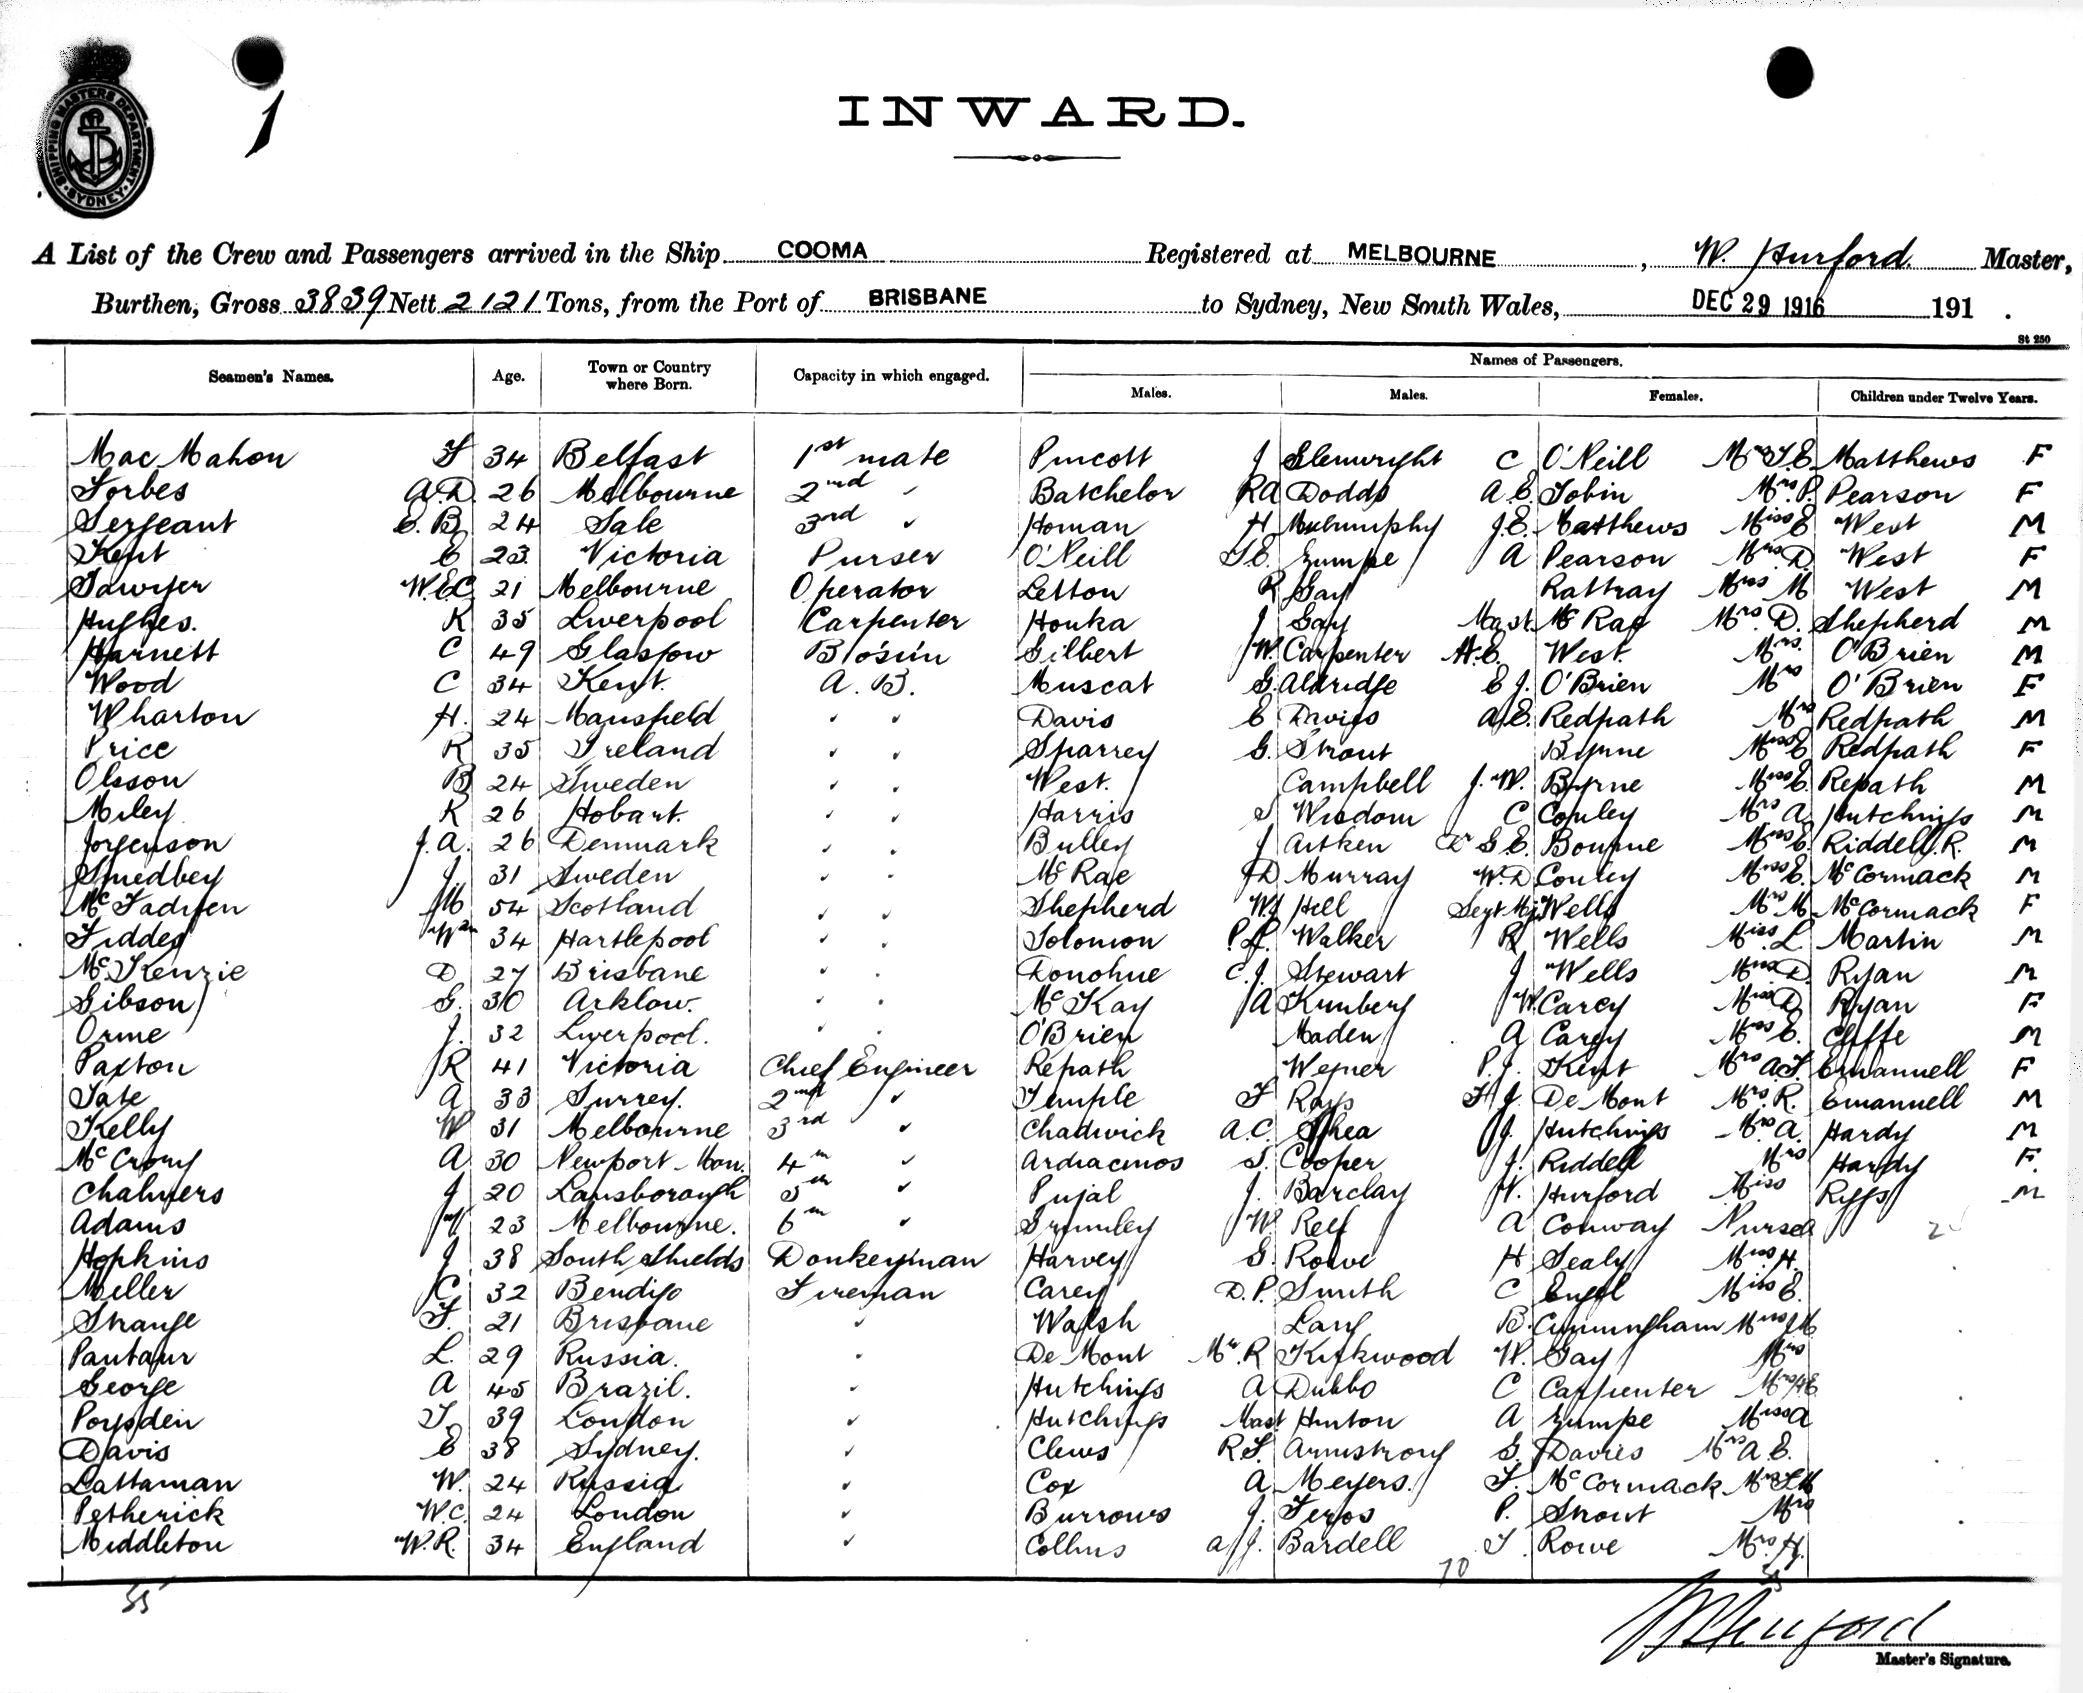 SHIPPING MASTERS DEPARTMENT
SYDNEY
1
INWARD.
A List of the Crew and Passengers arrived in the Ship COOMA Registered at MELBOURNE, W. Hurford. Master,
Burthen, Gross 3839 Nett 2121 Tons, from the Port of BRISBANE to Sydney, New South Wales, DEC 29 1916 191 .
St 250
Seamen's Names. Age. Town or Country where Born. Capacity in which engaged. Names of Passengers.
Males. Males. Females. Children under Twelve Years.
Mac Mahon F 34 Belfast 1st mate J Glenwright C O'Neill Mrs T.E. Matthews F
Forbes A.D. 26 Melbourne 2nd " Batchelor RA Dodds A.E. Tobin Mrs P. Pearson F
Sergeant E.B. 24 Sale 3rd " Homan H J.E. Matthews Miss E West M
Kent E 23 Victoria Purser O'Neill T.E. Zumpe A Pearson Mrs D. West F
Sawyer W.E.C. 21 Melbourne Operator Letton R Gay Rattray Miss M West M
Hughes. R 35 Liverpool Carpenter Houka J Gay Mast McRae Mrs. D. Shepherd M
Harnett C 49 Glasgow Bo'sun Gilbert W. Carpenter H.E. West. Mrs. O'Brien M
Wood C 34 Kent. A.B. Muscat G. Aldridge E J. O'Brien Mrs O'Brien F
Wharton H. 24 Mansfield " " Davis E Davies A.E. Redpath Mrs Redpath M
Price R 35 Ireland " " Sparrey G. Strout Byrne Miss E Redpath F
Olsson B 24 Sweden " " West. Campbell J.W. Byrne Miss E. Repath M
Miley R 26 Hobart. " " Harris S Wisdom C Conley Mrs A. Hutchings M
Jorgenson J.A. 26 Denmark " " Bulley J Aitken Dr G.E. Bourne Miss E. Riddell. R. M
Smedbey J. 31 Sweden " " McRae D Murray W.D. Conley Miss E. McCormack M
McFadyen M 54 Scotland " " Shepherd W Hill Sergt Mj. Wells Mrs M. McCormack F
Fiddes Wm 34 Hartlepool " " Solomon P.L. Walker R Wells Miss. L Martin M
McKenzie D 27 Brisbane " " Donohue C.J. Stewart J Wells Miss D. Ryan M
Gibson G. 30 Arklow. " " McKay A Kimbery W. Carey Miss D. Ryan F
Orme J. 32 Liverpool. " " O'Brien Maden A Carey Miss E. Cliffe M
Paxton R 41 Victoria Chief Engineer Repath Wegner P.J. Kent Mrs A.F. Emanuell F
Tate A 33 Surrey. 2nd " Temple F Rays H J. De Mont Mrs. R. Emanuell M
Kelly W 31 Melbourne 3rd " Chadwick A.C. Shea J. Hutchings Mrs A. Hardy M
McCrory A 30 Newport Mon. 4th " S. Cooper J. Riddell Mrs Hardy F.
Chalmers J 20 5th " Pujal J. Barclay H. Hurford Miss Riggs M
Adams 23 Melbourne. 6th " Grimley W. Reef A Conway Nurse
Hopkins J 38 South Shields Donkeyman Harvey G. Rowe H Sealy Miss H.
Miller C. 32 Bendigo Fireman Carey D.P. Smith C Engel Miss E.
Strange F. 21 Brisbane " Walsh Lang B. Cunningham Mrs J M
Pantaur L. 29 Russia. " De Mont Mr. R Kirkwood W. Gay Mrs
George A 45 Brazil. " Hutchings A Dubbo C Carpenter Mrs H E
Poysden T. 39 London " Hutchings Mast Hinton A Zumpe Miss A
Davis E 38 Sydney. " Clews R.F. Armstrong G. Davies Mrs A.E.
Lattaman W. 24 Russia " Cox A Meyers. F. McCormack Mrs
Petherick W.C. 24 London " Burrows J. Feros P. Strout Mrs
Middleton W.R. 34 England " Collins a/J. Bardell T. Rowe Mrs. H.
35 70 35
W Hurford
Master's Signature.